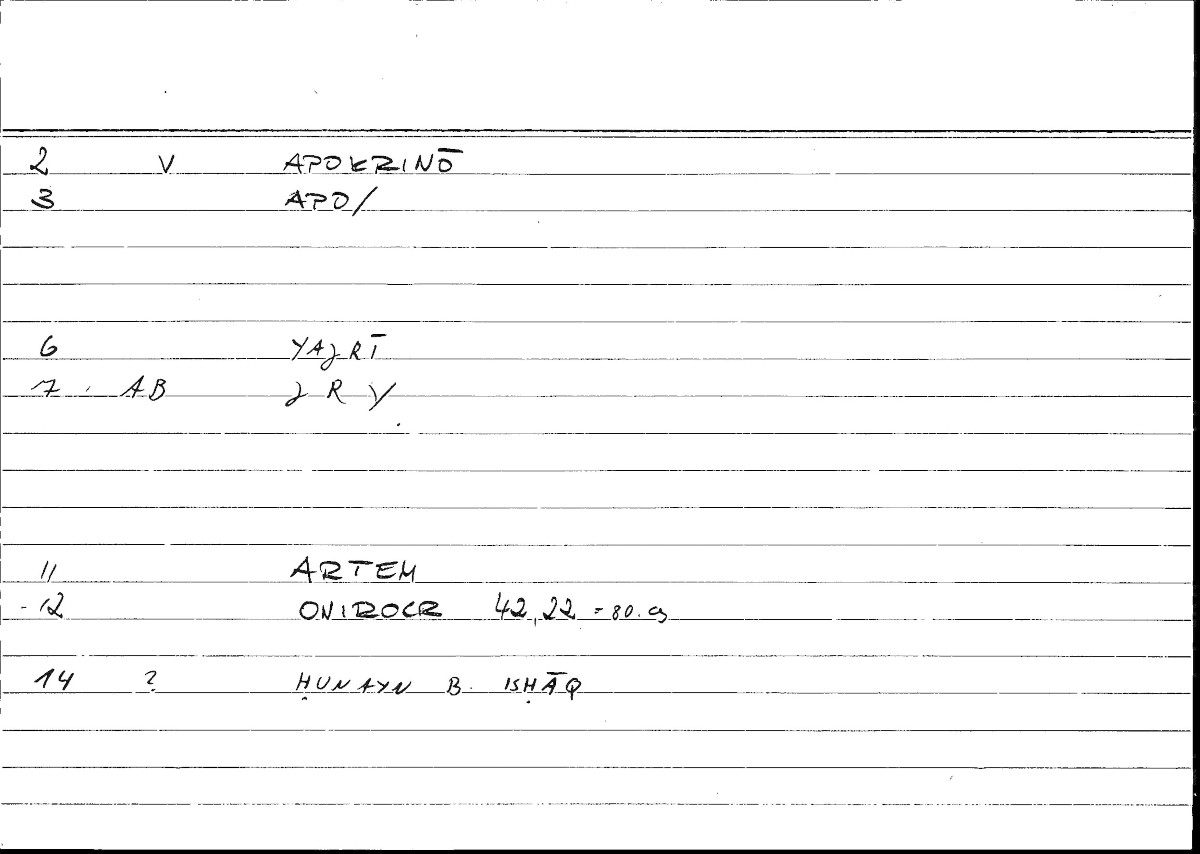 2 V APOKRINŌ
3 APO/
6 YAJRĪ
7 AB J R Y
11 ARTEM
12 ONIROCR 42,22 = 80.
14 ? ḤUNAYN B. ISḤĀQ